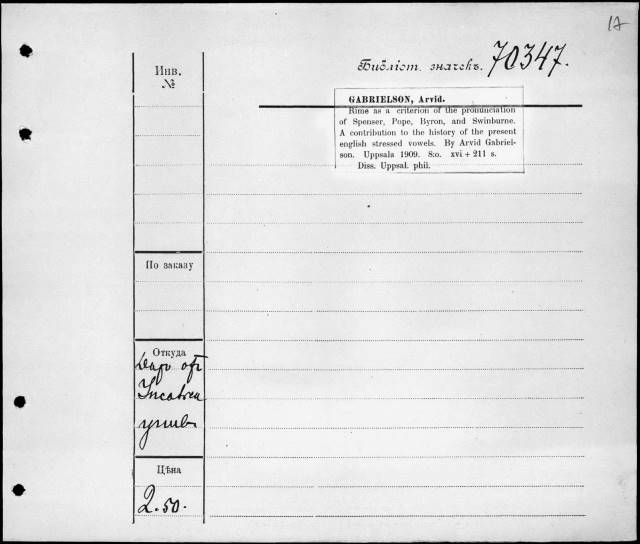 17
Библіот. значекъ. 70347.
Инв.
№
GABRIELSON, Arvid.
Rime as a criterion of the pronunciation
of Spenser, Pope, Byron, and Swinburne.
A contribution to the history of the present
english stressed vowels. By Arvid Gabriel-
son. Uppsala 1909. 8:o. xvi + 211 s.
Diss. Uppsal. phil.
По заказу
Откуда
Даръ отъ
унив.
Цѣна
2.50.